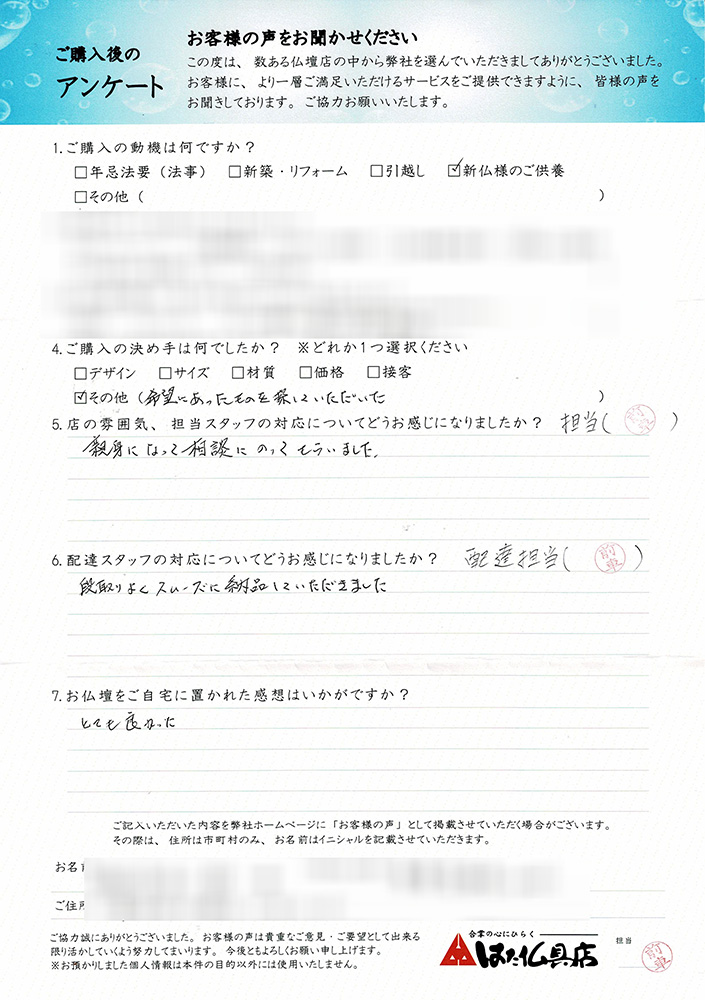 ご購入後の
アンケート
お客様の声をお聞かせください
この度は、数ある仏壇店の中から弊社を選んでいただきましてありがとうございました。
お客様に、より一層ご満足いただけるサービスをご提供できますように、皆様の声を
お聞きしております。ご協力お願いいたします。
1.ご購入の動機は何ですか？
□年忌法要（法事） □新築・リフォーム □引越し ☑新仏様のご供養
□その他（ ）
4.ご購入の決め手は何でしたか？ ※どれか1つ選択ください
□デザイン □サイズ □材質 □価格 □接客
☑その他（希望にあったものを探していただいた ）
5.店の雰囲気、担当スタッフの対応についてどうお感じになりましたか？ 担当( )
親身になって相談にのってもらいました。
6.配達スタッフの対応についてどうお感じになりましたか？ 配達担当( )
段取りよくスムーズに納品していただきました
7.お仏壇をご自宅に置かれた感想はいかがですか？
とても良かった
ご記入いただいた内容を弊社ホームページに「お客様の声」として掲載させていただく場合がございます。
その際は、住所は市町村のみ、お名前はイニシャルを記載させていただきます。
お名前
ご住所
ご協力誠にありがとうございました。お客様の声は貴重なご意見・ご要望として出来る
限り活かしていくよう努力してまいります。今後ともよろしくお願い申し上げます。
※お預かりしました個人情報は本件の目的以外には使用いたしません。
合掌の心にひらく
はた仏具店
担当